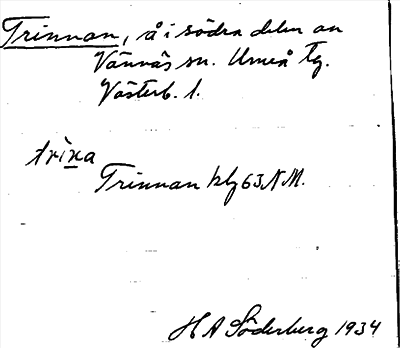 Trinnan, å i södra delen av
Vännäs sn. Umeå Tg.
Västerb. l.
trìna
Trinnan blg 63 N M.
H A Söderberg 1934